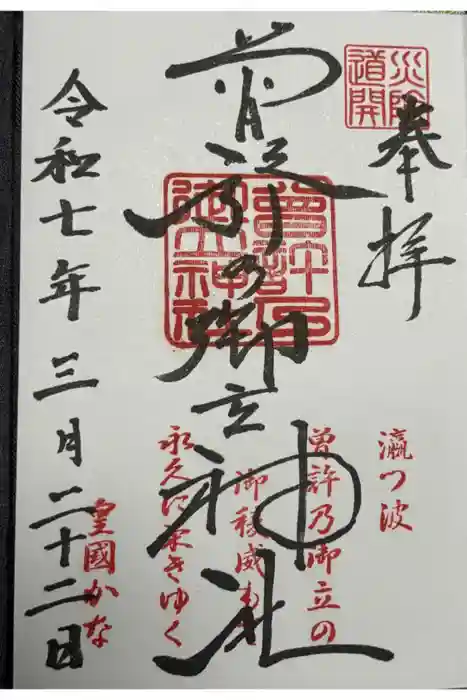 災除
道開
奉拝
曽許乃御立神社
曾許乃
御立神社
令和七年三月二十二日
瀛つ波
曽許乃御立の
御稜威も
永久に栄きゆく
皇國かな